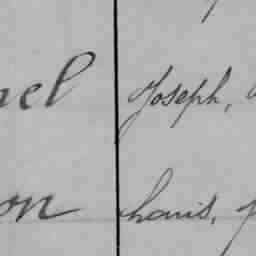 nel Joseph,
on Louis,